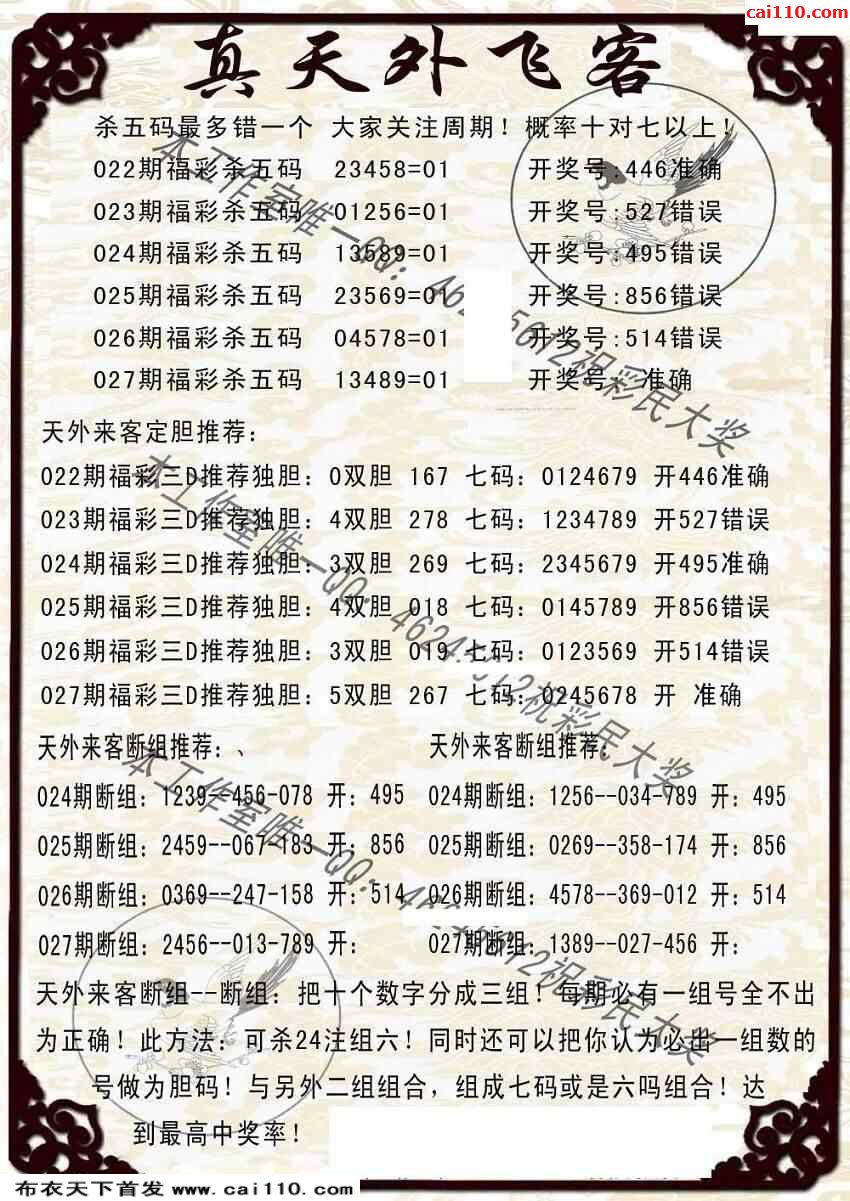 cai110.com
真天外飞客
杀五码最多错一个 大家关注周期！概率十对七以上！
022期福彩杀五码 23458=01 开奖号:446准确
023期福彩杀五码 01256=01 开奖号:527错误
024期福彩杀五码 13589=01 开奖号:495错误
025期福彩杀五码 23569=01 开奖号:856错误
026期福彩杀五码 04578=01 开奖号:514错误
027期福彩杀五码 13489=01 开奖号: 准确
天外来客定胆推荐：
022期福彩三D推荐独胆：0双胆 167 七码：0124679 开446准确
023期福彩三D推荐独胆：4双胆 278 七码：1234789 开527错误
024期福彩三D推荐独胆：3双胆 269 七码：2345679 开495准确
025期福彩三D推荐独胆：4双胆 018 七码：0145789 开856错误
026期福彩三D推荐独胆：3双胆 019 七码：0123569 开514错误
027期福彩三D推荐独胆：5双胆 267 七码：0245678 开 准确
天外来客断组推荐：、 天外来客断组推荐：
024期断组：1239--456-078 开：495 024期断组：1256--034-789 开：495
025期断组：2459--067-183 开：856 025期断组：0269--358-174 开：856
026期断组：0369--247-158 开：514 026期断组：4578--369-012 开：514
027期断组：2456--013-789 开： 027期断组：1389--027-456 开：
天外来客断组--断组：把十个数字分成三组！每期必有一组号全不出
为正确！此方法：可杀24注组六！同时还可以把你认为必出一组数的
号做为胆码！与另外二组组合，组成七码或是六吗组合！达
到最高中奖率！
布衣天下首发 www.cai110.com